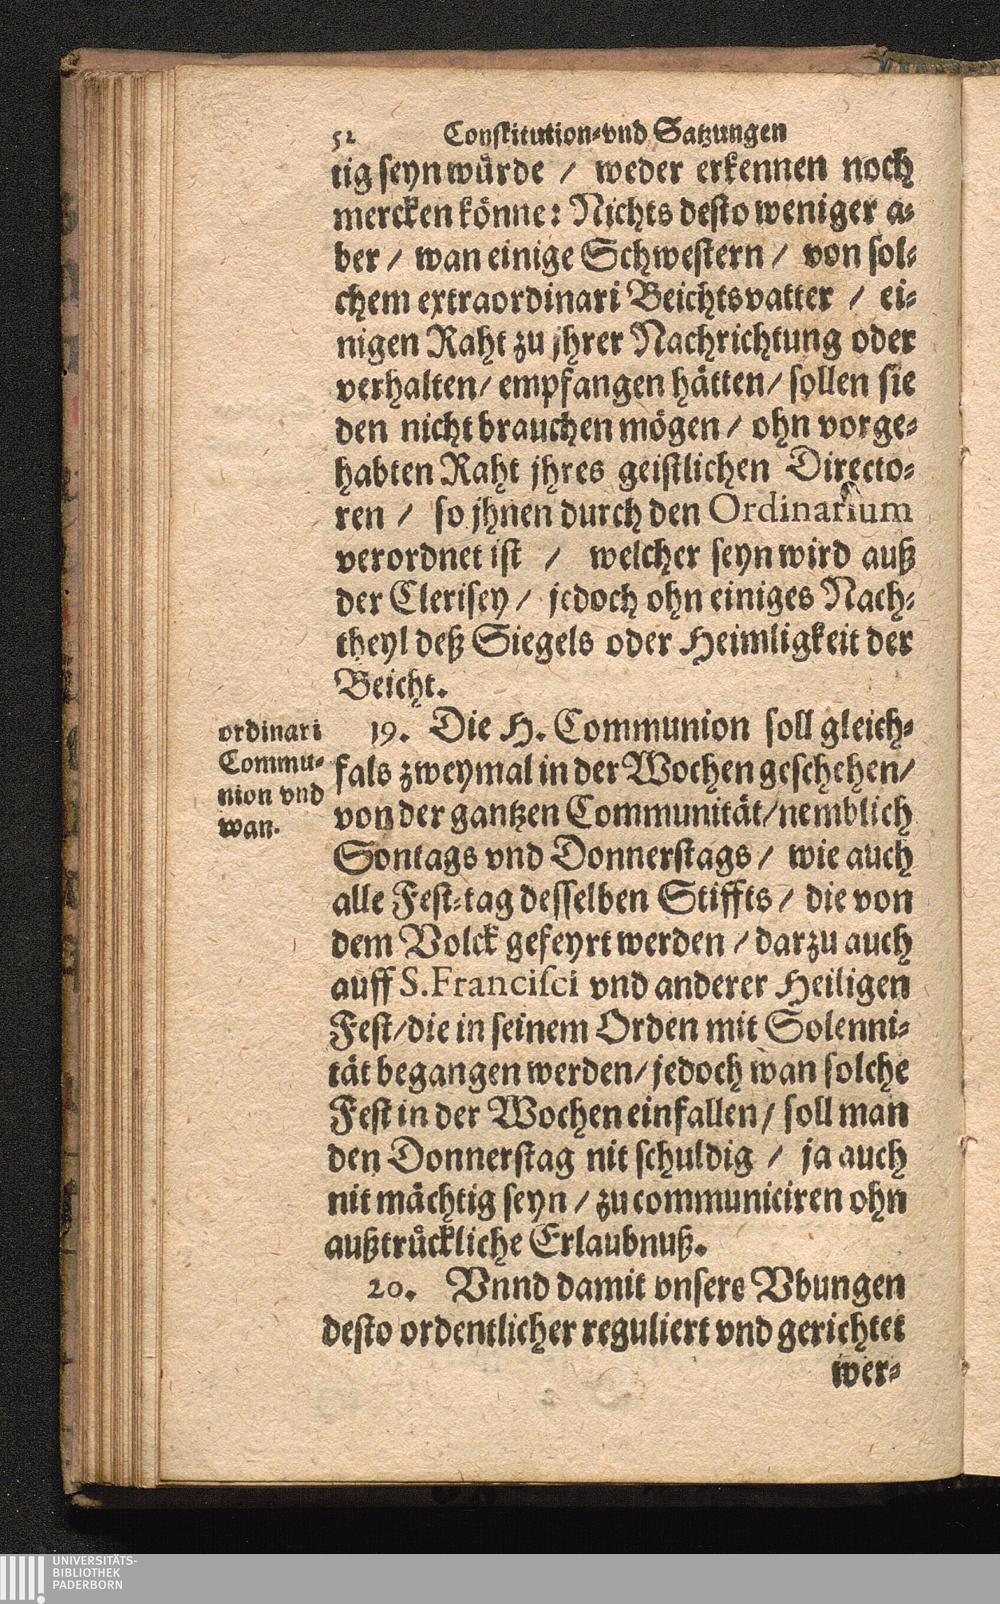 52 Constitution-vnd Satzungen
tig seyn würde / weder erkennen noch
mercken könne: Nichts desto weniger a-
ber / wan einige Schwestern / von sol-
chem extraordinari Beichtsvatter / ei-
nigen Raht zu jhrer Nachrichtung oder
verhalten / empfangen hätten / sollen sie
den nicht brauchen mögen / ohn vorge-
habten Raht jhres geistlichen Directo-
ren / so jhnen durch den Ordinarium
verordnet ist / welcher seyn wird auß
der Clerisey / jedoch ohn einiges Nach-
theyl deß Siegels oder Heimligkeit der
Beicht.
ordinari
Commu-
nion vnd
wan.
19. Die H. Communion soll gleich-
fals zweymal in der Wochen geschehen /
von der gantzen Communität / nemblich
Sontags vnd Donnerstags / wie auch
alle Fest-tag desselben Stiffts / die von
dem Volck gefeyrt werden / darzu auch
auff S. Francisci vnd anderer Heiligen
Fest / die in seinem Orden mit Solenni-
tät begangen werden / jedoch wan solche
Fest in der Wochen einfallen / soll man
den Donnerstag nit schuldig / ja auch
nit mächtig seyn / zu communiciren ohn
außtrückliche Erlaubnuß.
20. Vnnd damit vnsere Vbungen
desto ordentlicher reguliert vnd gerichtet
wer-
UNIVERSITÄTS-
BIBLIOTHEK
PADERBORN